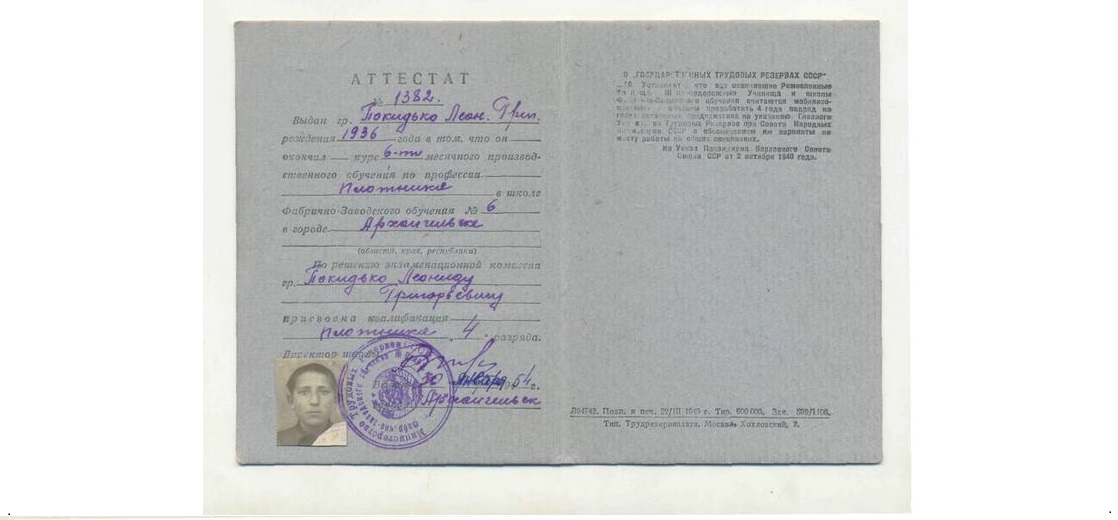 АТТЕСТАТ
№ 1382.
Выдан гр. Покидько Леон. Григ.
рождения 1936 года в том, что он
окончил курс 6-ти месячного производ-
ственного обучения по профессии
плотника в школе
Фабрично-Заводского обучения № 6
в городе Архангельске
(области, края, республики)
По решению экзаменационной комиссии
гр. Покидько Леониду
Григорьевичу
присвоена квалификация
плотника „4"-разряда.
Директор
30 января 54 г.
Архангельск
Министерство Трудовых Резервов
О „ГОСУДАРСТВЕННЫХ ТРУДОВЫХ РЕЗЕРВАХ СССР"
что все окончившие Ремесленные
Училища и школы
обучения считаются мобилизо-
проработать 4 года подряд на
предприятиях по указанию Главного
Трудовых Резервов при Совете Народных
СССР с обеспечением им зарплаты по
месту работы на общих основаниях.
Из Указа Президиума Верховного Совета
Союза ССР от 2 октября 1940 года.
Л94742. Подп. к печ. 22/III 1949 г. Тир. 600 000. Зак.
Тип. Трудрезервиздата. Москва, Хохловский, 7.